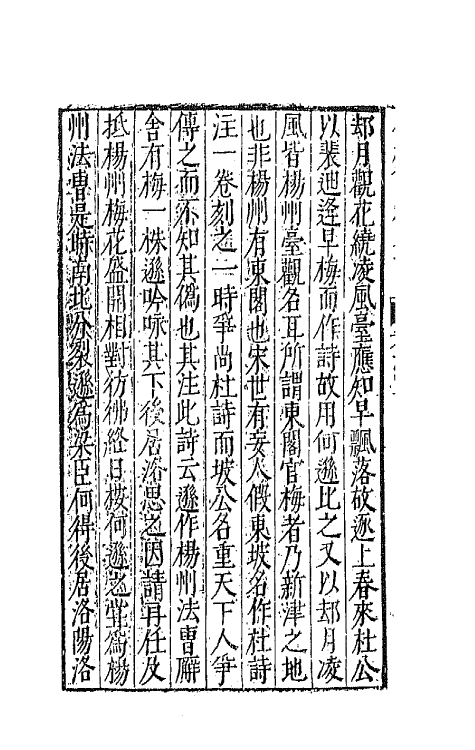 却月觀花繞凌風臺應知早飄落故逐上春來杜公
以裴迪逢早梅而作詩故用何遜比之又以却月凌
風皆楊州臺觀名耳所謂東閣官梅者乃新津之地
也非楊州有東閣也宋世有妄人假東坡名作杜詩
注一卷刻之一時爭尚杜詩而坡公名重天下人爭
傳之而不知其僞也其注此詩云遜作楊州法曹廨
舍有梅一株遜吟咏其下後居洛思之因請再任及
抵楊州梅花盛開相對彷彿終日按何遜之嘗爲楊
州法曹是時南北分裂遜爲梁臣何得後居洛陽洛